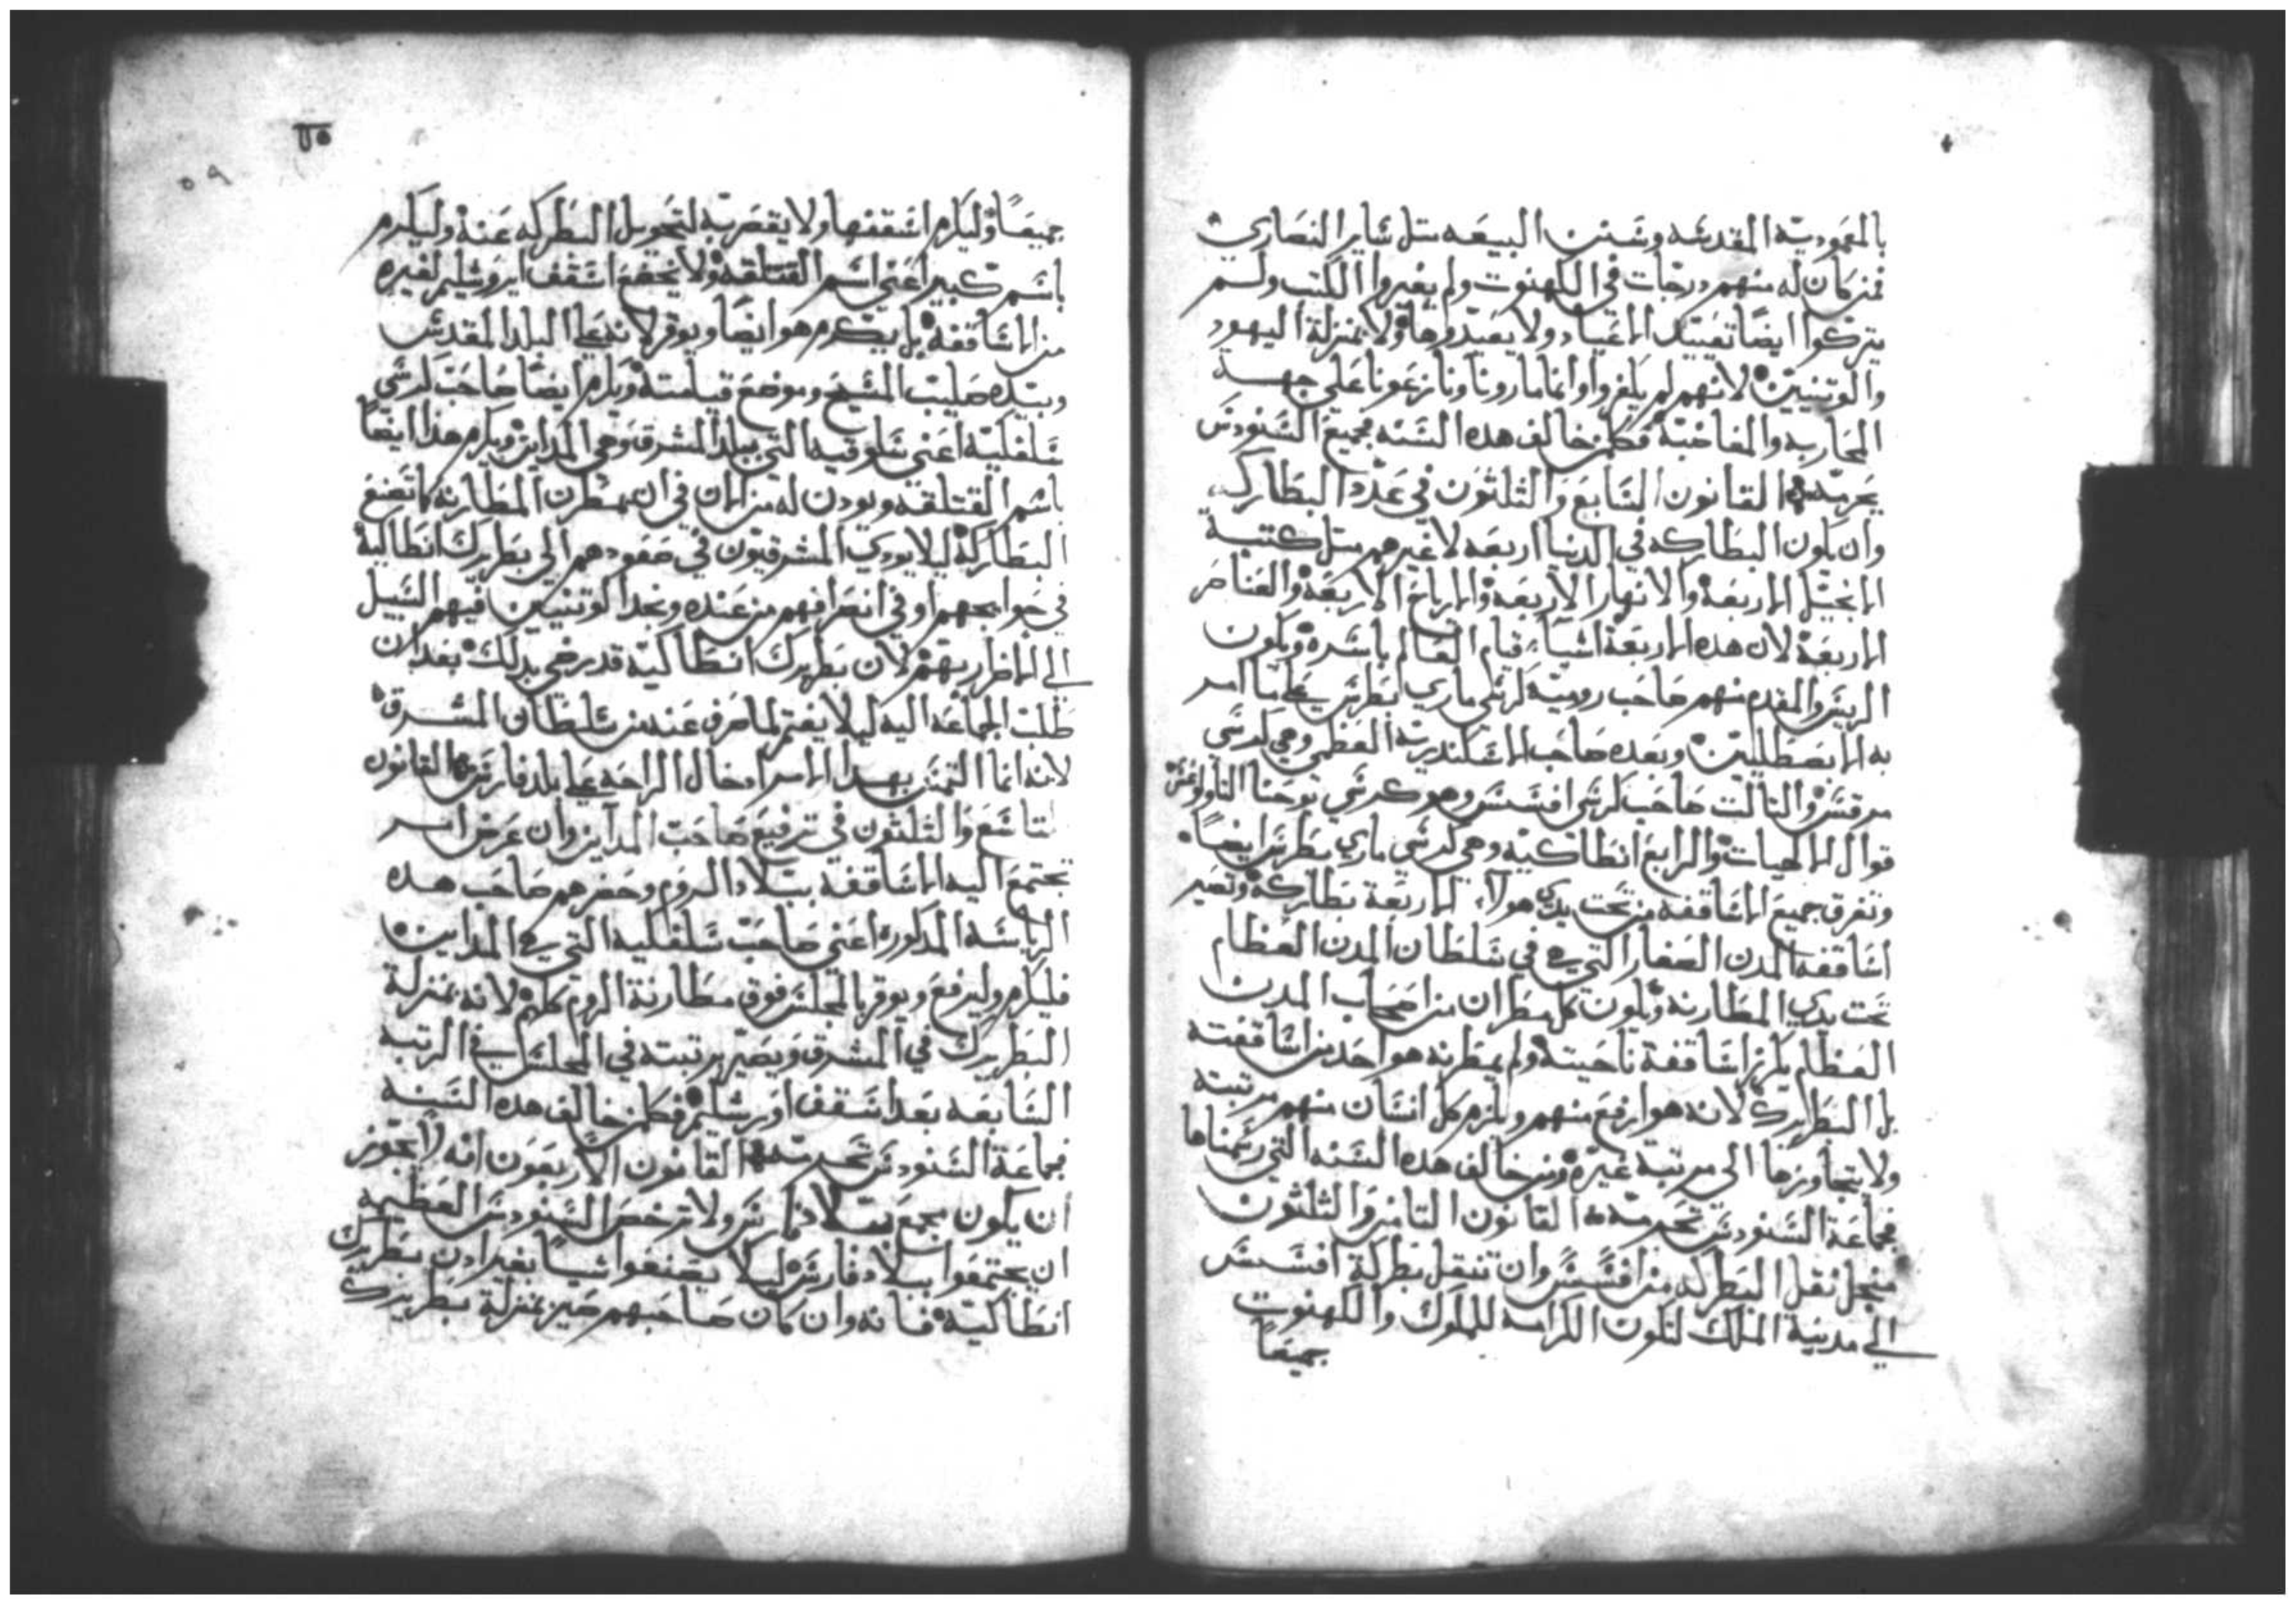 بالمعموديه المقدسه وسنن البيعه متل ساير النصاري
فمن كان له منهم درجات في الكهنوت ولم يغيروا الكتب ولم
يتركوا ايضًا تعييد الاعياد ولا يعيدوها ولا بمنزلة اليهود
والوتنيين لانهم لم يكفروا وانما مارونا ونازعونا على جهة
المحاربه والمغاضبه فكلمن خالف هده السنه فجميع السنودس
يحرمه القانون السابع والثلثون في عدد البطاركه
وان يكون البطاركه في الدنيا اربعه لا غيرهم متل كتبة
الانجيل الاربعة والانهار الاربعة والارياح الاربعة والعناصر
الاربعة لان هده الاربعة اشياء قيام العالم باسره ويكون
الرييس والمقدم منهم صاحب رومية كرسي ماري بطرس على ما امر
به الابسطليين وبعده صاحب الاسكندريه العظمي وهي كرسي
مرقس والتالت صاحب كرسي افسس وهو كرسي يوحنا التاولوغس
قوال الالهيات والرابع انطاكيه وهي كرسي ماري بطرس ايضًا
وتفرق جميع الاساقفه من تحت يدي هولاء الاربعة بطاركة وتصير
اساقفة المدن الصغار التي هي في سلطان المدن العظام
تحت يدي المطارنه ويكون كل مطران من اصحاب المدن
العظام يكرز اساقفة ناحيته ولم يمطرنه هو احد من اساقفته
بل البطريرك لانه هو ارفع منهم ويلزم كل انسان منهم مرتبته
ولا يتجاوزها الى مرتبة غيره ومن خالف هده السنه التي رسمناها
فجماعة السنودس تحرمه القانون التامن والثلثون
منجل نقل البطركه من افسس وان تنقل بطركة افسس
الي مدينة الملك لتكون الكرامه للملوك والكهنوت
جميعًا
٥٩
جميعًا وليكرم اسقفها ولا يقصر به لتحويل البطركه عنه وليكرم
باسم كبير اعني اسم القتلقه ولا يخضع اسقف ايروشليم لغيره
من الاساقفة بل يكرم هو ايضًا ويوقر لانه علي البلد المقدس
وبيده صليب المسيح وموضع قيامته ويكرم ايضًا صاحب كرسي
سلفكية اعني سلوقيه التي ببلد المشرق وهي المداين ويكرم هدا ايضًا
باسم القتلقه ويودن له من الان في ان يمطرن المطارنه كما تصنع
البطاركة ليلا يودي المشرقيون في صعودهم الي بطريرك انطاكية
في حوايجهم او في انصرافهم من عنده ويجد الوتنيين فيهم السبيل
الي الاضرار بهم لان بطريرك انطاكيه قد رضي بدلك بعد ان
طلبت الجماعه اليه ليلا يغتم لما صرف عنه من سلطان المشرق
لانه انما التمس بهدا الامر ادخال الراحه علي بلد فارس القانون
التاسع والثلثون في ترفيع صاحب المداين وان عرض امر
تجتمع اليه الاساقفه ببلاد الروم وحضرهم صاحب هده
الرياسه المدكوره اعني صاحب سلفكيه التي هي المداين
فليكرم وليرفع ويوقر بالمجلس فوق مطارنة الروم كلهم لانه بمنزلة
البطريرك في المشرق ويصير مرتبته في المجلس في الرتبه
السابعه بعد اسقف اورشليم فكلمن خالف هده السنه
فجماعة السنودس تحرمه القانون الاربعون انه لا يجوز
ان يكون مجمع ببلاد فارس ولا ترخص السنودس العظيمه
ان يجتمعوا ببلاد فارس ليلا يصنعوا شيًا بغير ادن بطريرك
انطاكية فانه وان كان صاحبهم صير بمنزلة بطريرك